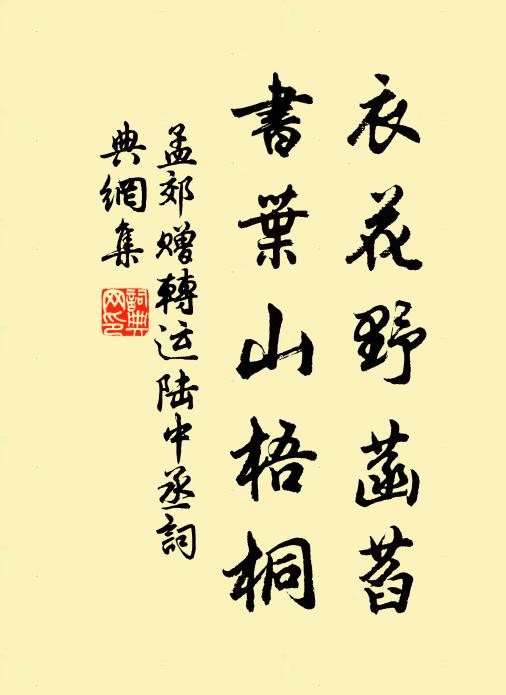 衣花野菡萏
書葉山梧桐
孟郊贈轉运陆中丞詞
典網集
詞典网印